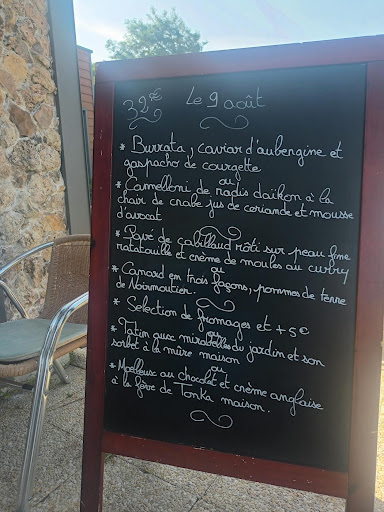 32€ Le 9 août
* Burrata, caviar d'aubergine et
gaspacho de courgette
ou
* Cannelloni de radis daïkon à la
chair de crabe jus de coriande et mousse
d'avocat
* Pavé de cabillaud rôti sur peau fine
ratatouille et crème de moules au curry
ou
* Canard en trois façons, pommes de terre
de Noirmoutier.
* Sélection de fromages et +5€
ou
* Tatin aux mirabelles du jardin et son
sorbet à la mûre maison
ou
* Moelleux au chocolat et crème anglaise
à la fève de Tonka maison.